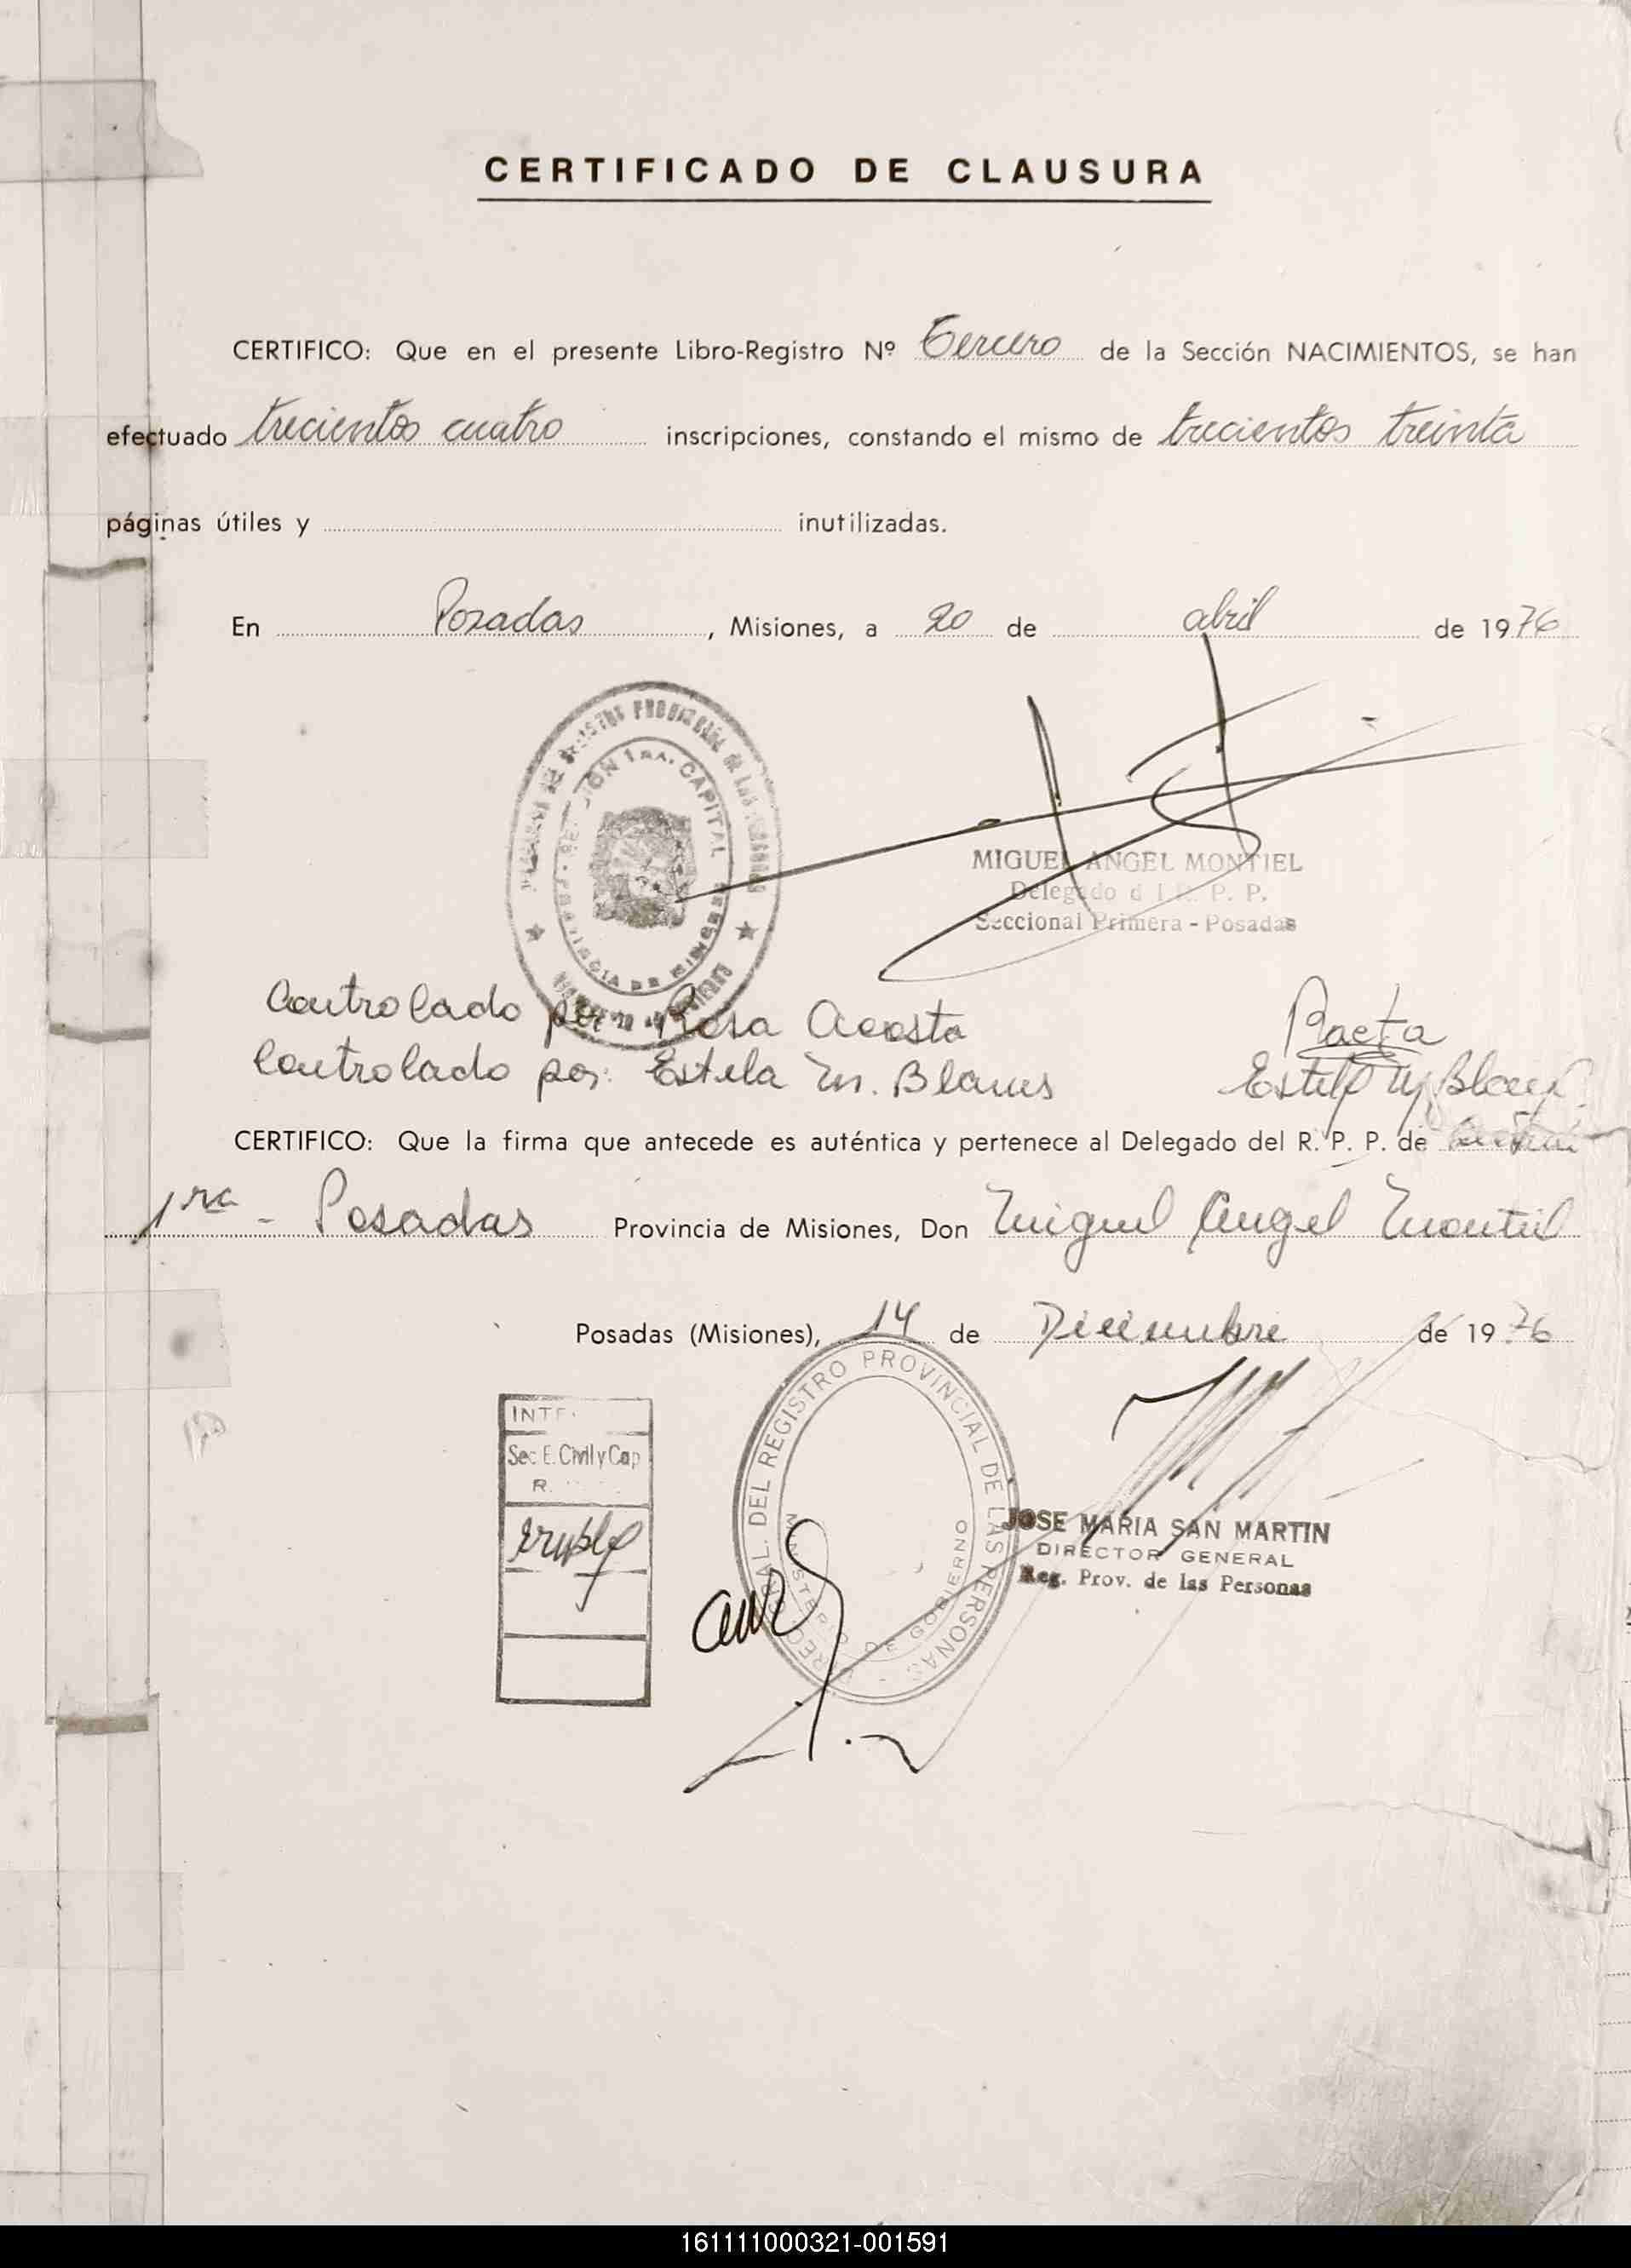 CERTIFICADO DE CLAUSURA
CERTIFICO: Que en el presente Libro-Registro Nº Tercero de la Sección NACIMIENTOS, se han
efectuado trecientos cuatro inscripciones, constando el mismo de trecientos treinta
páginas útiles y inutilizadas.
En Posadas, Misiones, a 20 de abril de 1976
SECCION 1RA. CAPITAL
PROVINCIA DE MISIONES
MIGUEL ANGEL MONTIEL
Delegado d l R. P. P.
Seccional Primera - Posadas
Controlado por Rosa Acosta
Controlado por: Estela M. Blanus
CERTIFICO: Que la firma que antecede es auténtica y pertenece al Delegado del R. P. P. de
1ra - Posadas Provincia de Misiones, Don Miguel Angel Montiel
Posadas (Misiones), 14 de Diciembre de 1976
Sec E. Civil y Cap
DIREC. GRAL. DEL REGISTRO PROVINCIAL DE LAS PERSONAS
MINISTERIO DE GOBIERNO
JOSE MARIA SAN MARTIN
DIRECTOR GENERAL
Reg. Prov. de las Personas
161111000321-001591